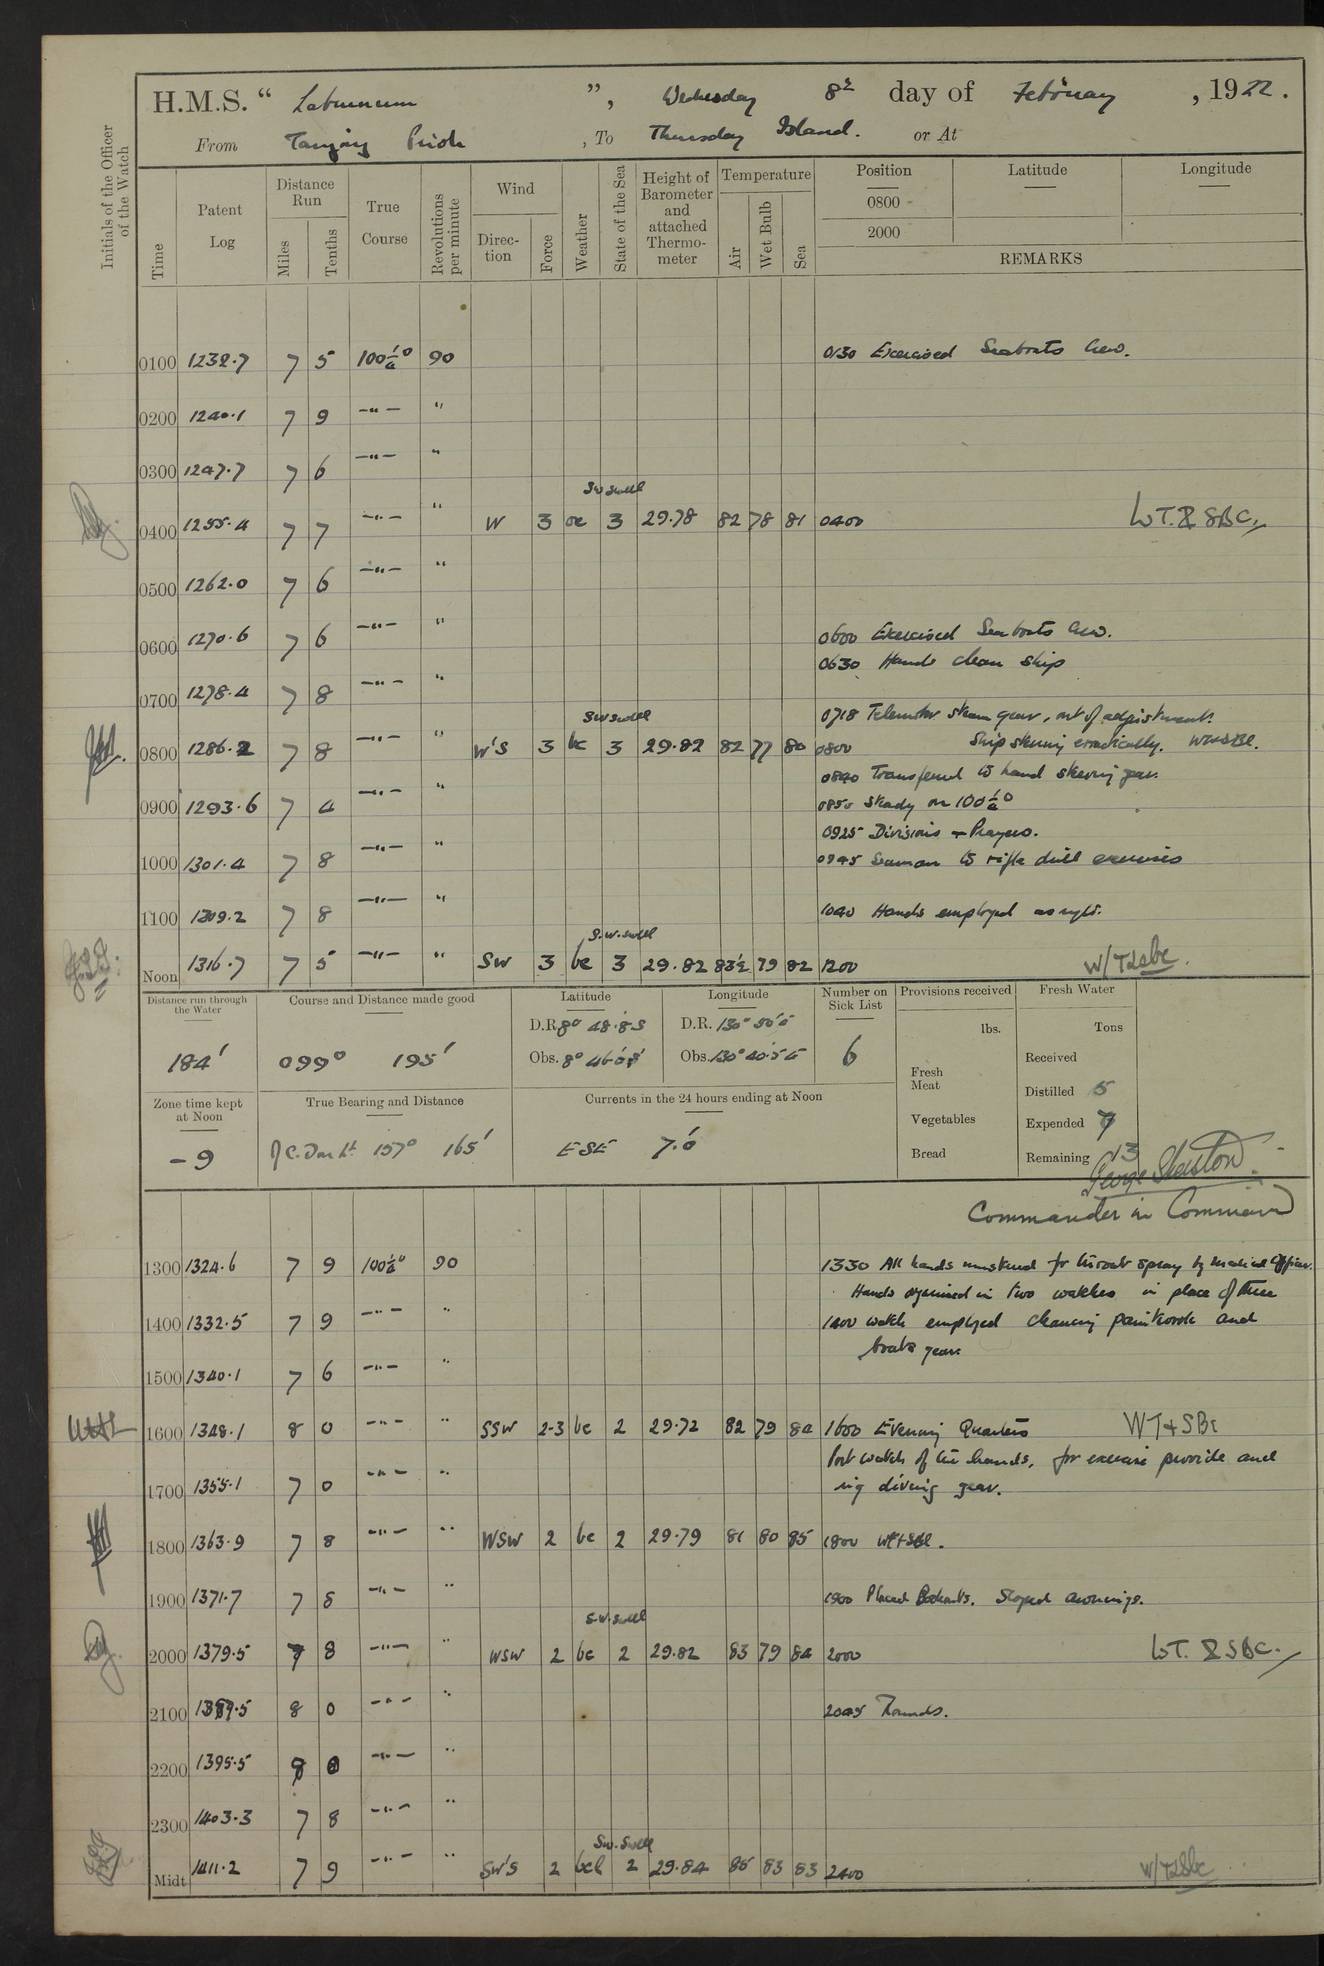 H.M.S. " Laburnum ", Wednesday 8th day of February, 1922.
From Tanjong Priok, To Thursday Island. or At
Initials of the Officer of the Watch
Time
Patent Log
Distance Run
Miles
Tenths
True Course
Revolutions per minute
Wind
Direc-tion
Force
Weather
State of the Sea
Height of Barometer and attached Thermo-meter
Temperature
Air
Wet Bulb
Sea
Position
0800
2000
Latitude
Longitude
REMARKS
0100 1232.7 7 5 100½° 90 0130 Exercised Seaboats Crew.
0200 1240.1 7 9 —"— "
0300 1247.7 7 6 —"— "
SW swell
0400 1255.4 7 7 —"— " W 3 bc 3 29.78 82 78 81 0400 WT. & SBC.
0500 1262.0 7 6 —"— "
0600 1270.6 7 6 —"— " 0600 Exercised Seaboats Crew.
0630 Hands clean ship
0700 1278.4 7 8 —"— "
SW swell 0718 Telemotor steam gear, out of adjustment.
0800 1286.2 7 8 —"— " W'S 3 bc 3 29.82 82 77 80 0800 Ship steering erratically.
0840 Transferred to hand steering gear.
0900 1293.6 7 4 —"— " 0850 Steady on 100½°
0925 Divisions + Prayers.
1000 1301.4 7 8 —"— " 0945 Seaman to rifle drill exercises
1100 1309.2 7 8 —"— " 1040 Hands employed as reqte.
S.W. swell
Noon 1316.7 7 5 —"— " SW 3 bc 3 29.82 83½ 79 82 1200 W/T & sbc.
Distance run through the Water
184'
Course and Distance made good
099° 195'
Latitude
D.R. 8° 48'.8 S
Obs. 8° 46'.0 S
Longitude
D.R. 130° 50'.0
Obs. 130° 40'.5 E
Number on Sick List
6
Provisions received
lbs.
Fresh Meat
Vegetables
Bread
Fresh Water
Tons
Received
Distilled 5
Expended 7
Remaining 13
Zone time kept at Noon
-9
True Bearing and Distance
157° 165'
Currents in the 24 hours ending at Noon
ESE 7'.0
Commander in Command
1300 1324.6 7 9 100½° 90 1330 All hands mustered for throat spray by Medical Officer.
Hands organised in two watches in place of three
1400 1332.5 7 9 —"— " 1400 watch employed cleaning paintwork and
boats gear
1500 1340.1 7 6 —"— "
1600 1348.1 8 0 —"— " SSW 2-3 bc 2 29.72 82 79 84 1600 Evening Quarters WT + SBC
Port watch of the hands, for exercise provide and
rig diving gear.
1700 1355.1 7 0 —"— "
1800 1363.9 7 8 —"— " WSW 2 bc 2 29.79 81 80 85 1800
1900 1371.7 7 8 —"— " 1900 Placed Lookouts. Sloped awnings.
S.W. swell
2000 1379.5 7 8 —"— " WSW 2 bc 2 29.82 83 79 84 2000 WT. & SBC.
2100 1387.5 8 0 —"— " 2045 Rounds.
2200 1395.5 8 0 —"— "
2300 1403.3 7 8 —"— "
SW. Swell
Midt 1411.2 7 9 —"— " SW'S 2 bcl 2 29.84 85 83 83 2400 W/T & Sbc